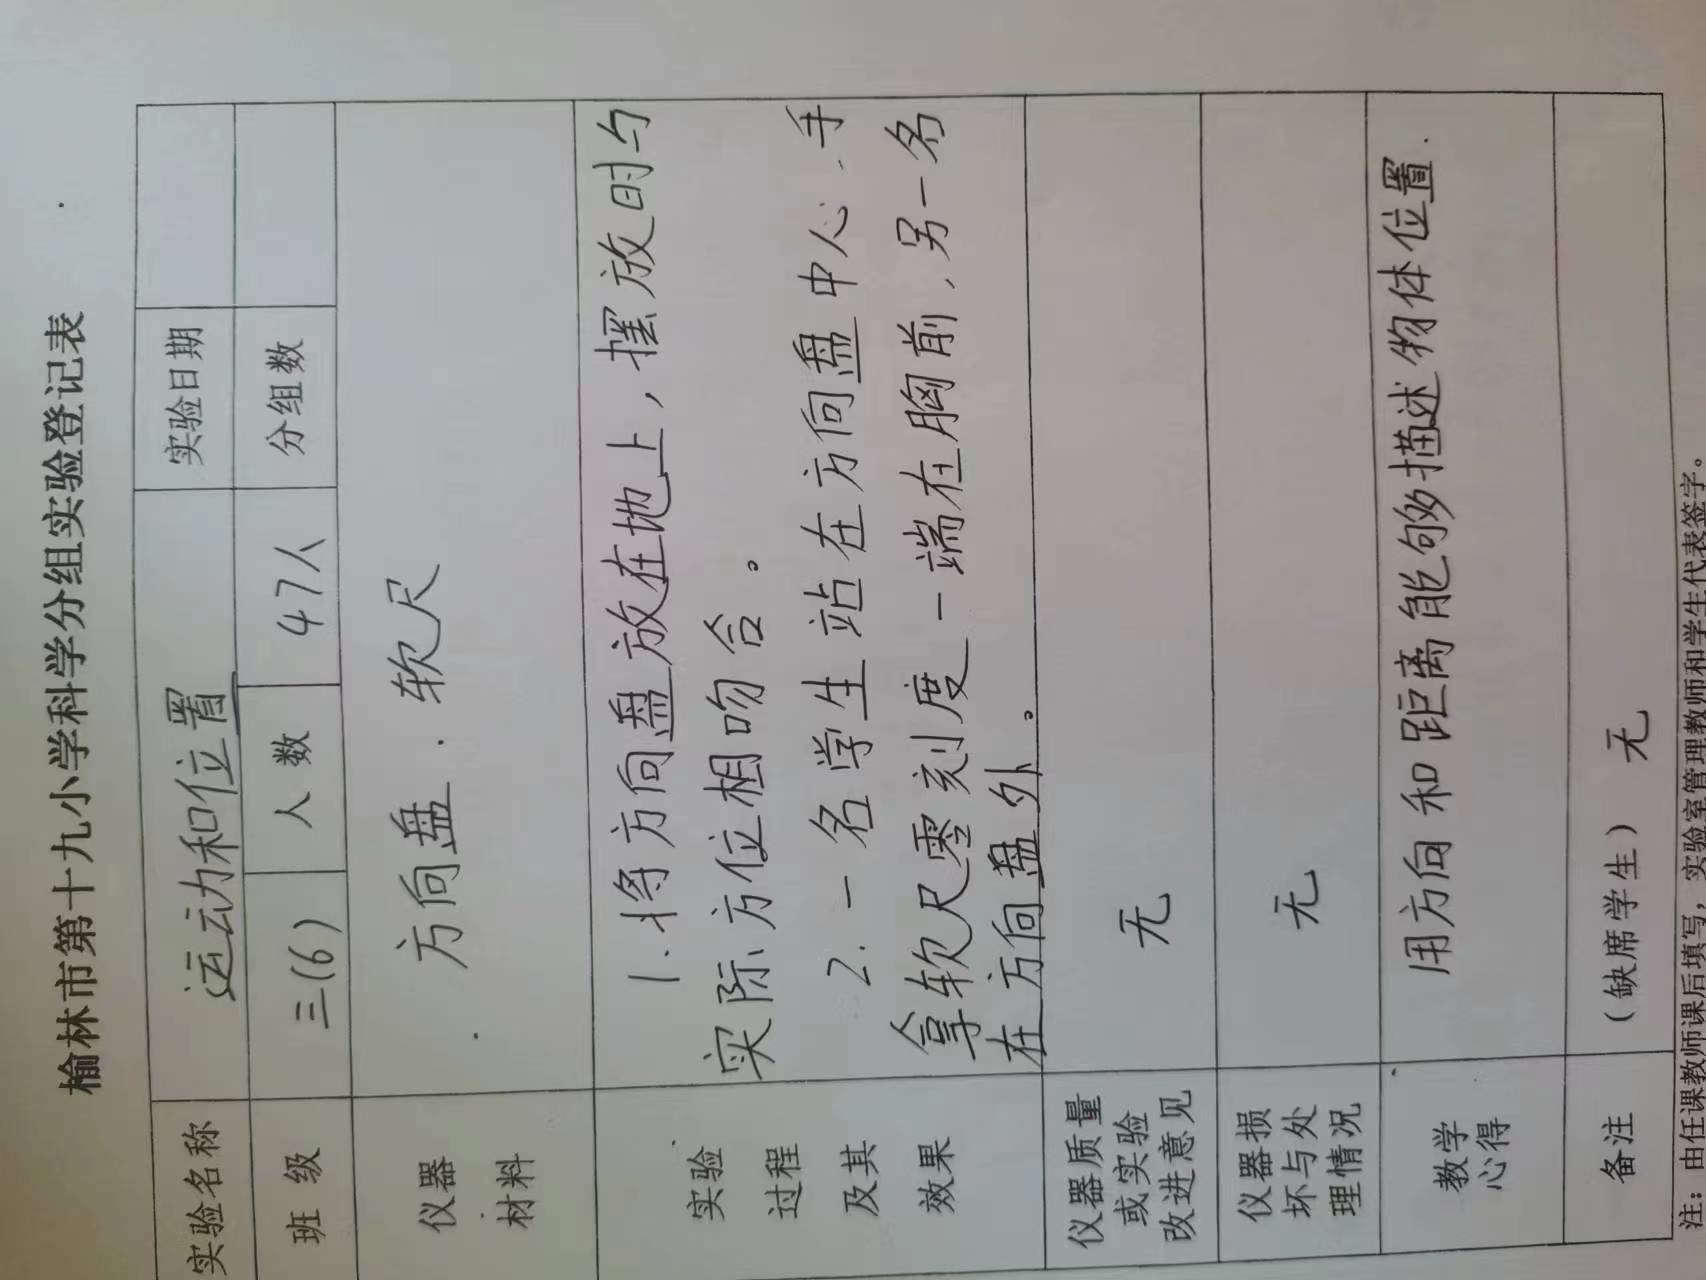 榆林市第十九小学科学分组实验登记表
实验名称 运动和位置 实验日期
班级 三(6) 人数 47人 分组数
仪器材料 方向盘.软尺
实验过程及其效果
1.将方向盘放在地上，摆放时与
实际方位相吻合。
2.一名学生站在方向盘中心,手
拿软尺零刻度一端在胸前,另一名
在方向盘外。
仪器质量或实验改进意见 无
仪器损坏与处理情况 无
教学心得 用方向和距离能够描述物体位置.
备注 (缺席学生) 无
注：由任课教师课后填写，实验室管理教师和学生代表签字。